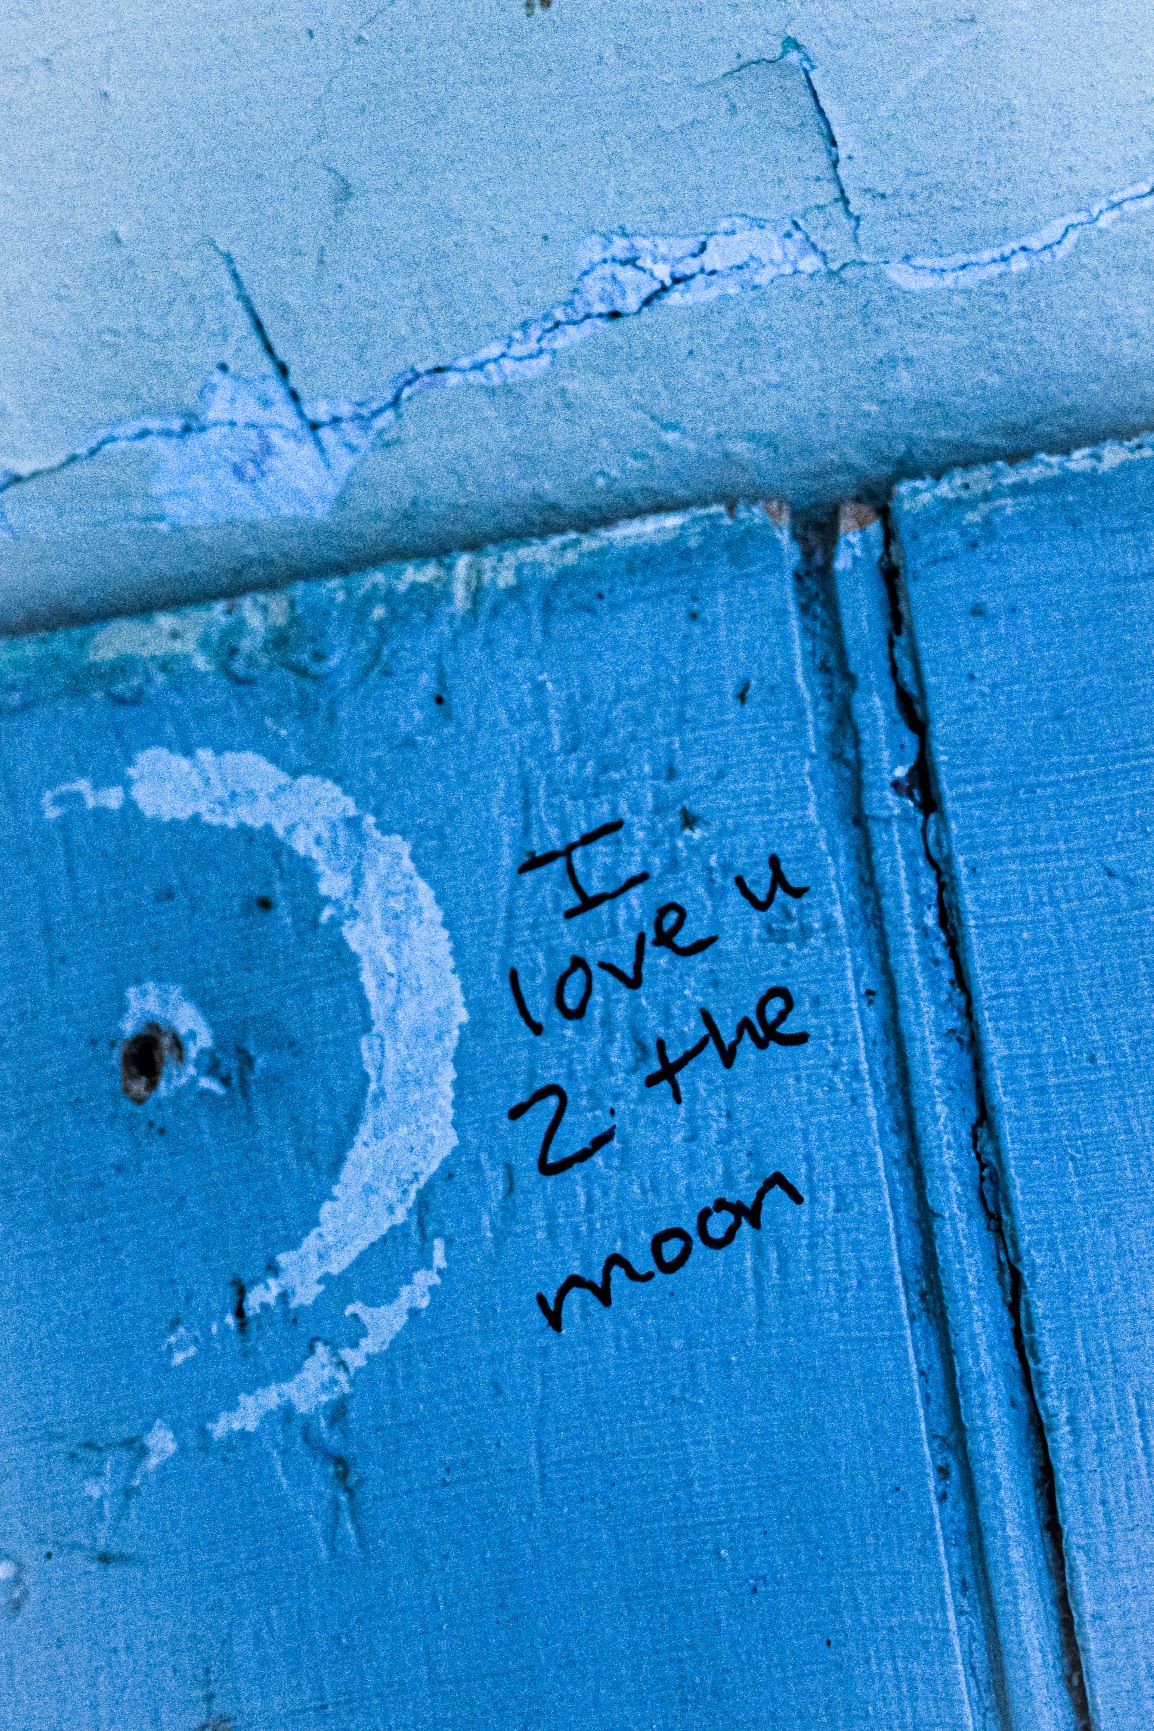 I
love u
2 the
moon